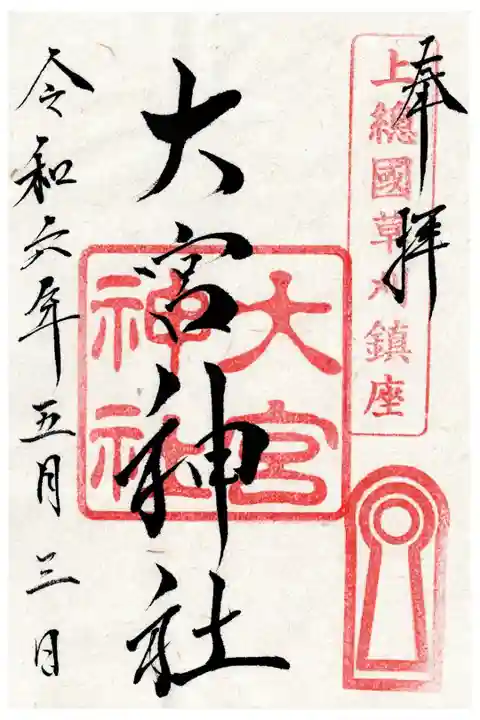 奉拝
上總國草刈鎮座
大宮神社
大宮神社
令和六年五月三日